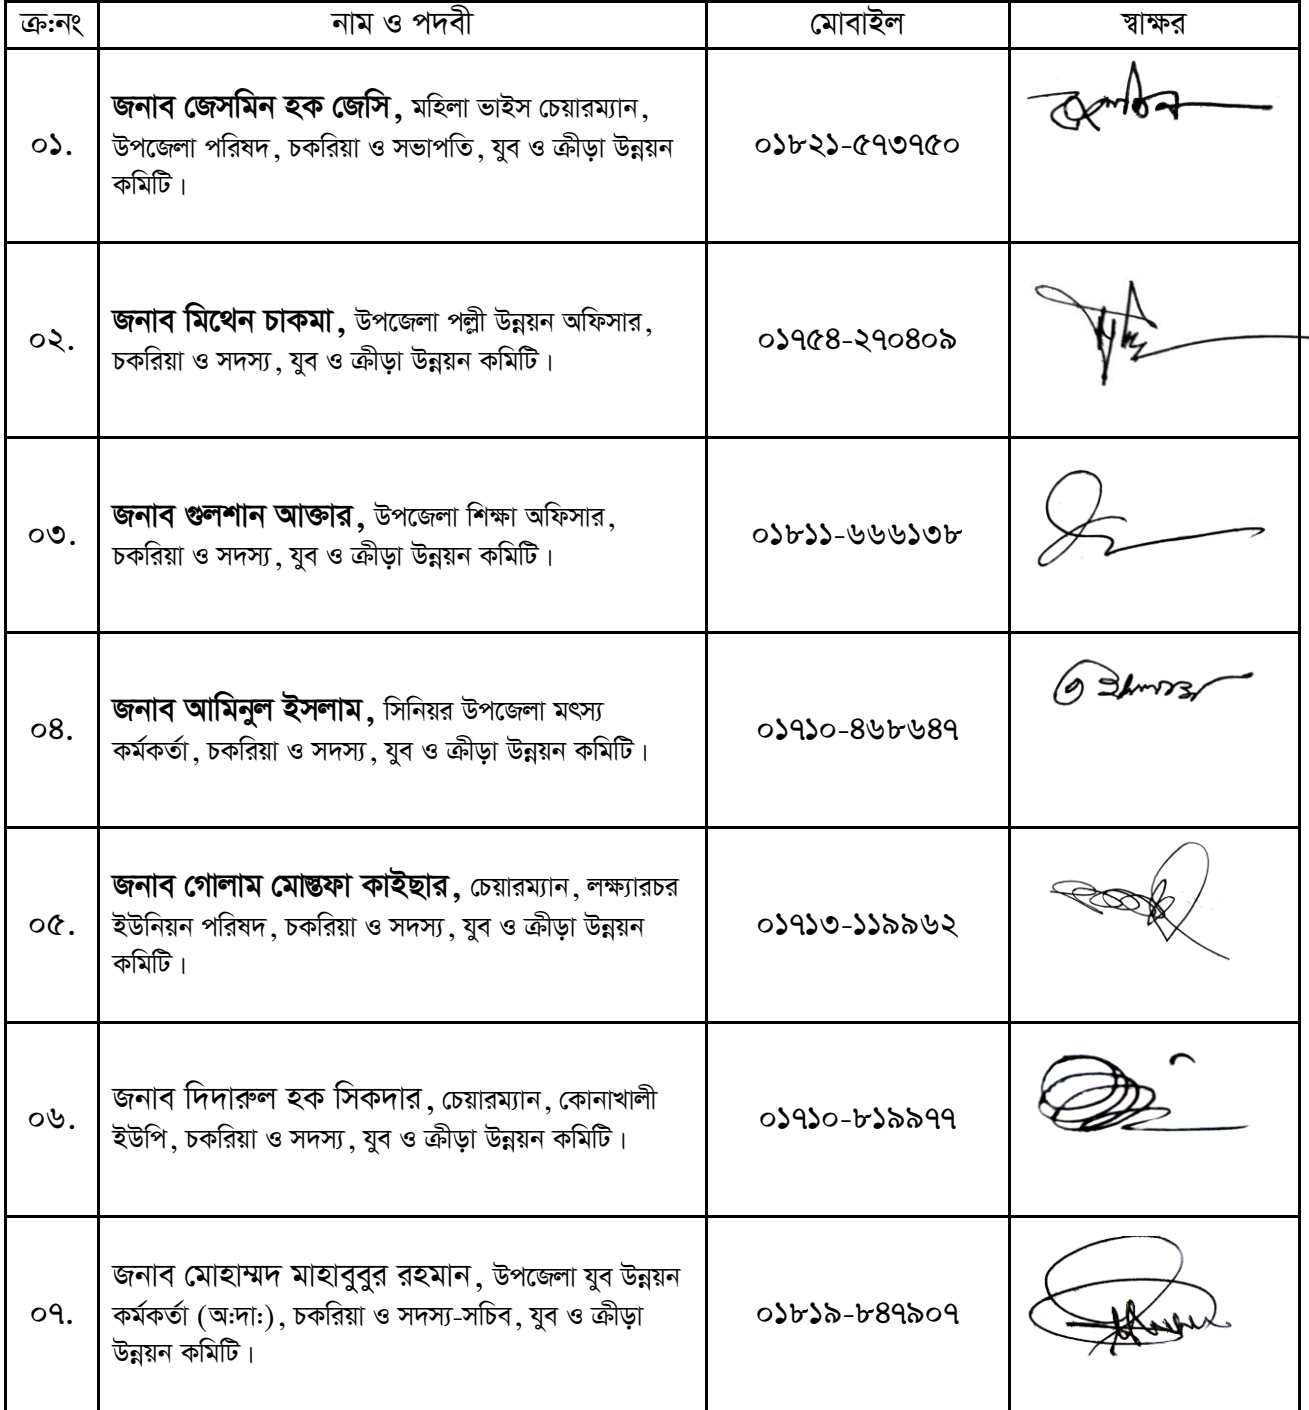 ক্র:নং নাম ও পদবী মোবাইল স্বাক্ষর
জনাব জেসমিন হক জেসি, মহিলা ভাইস চেয়ারম্যান,
০১. উপজেলা পরিষদ, চকরিয়া ও সভাপতি, যুব ও ক্রীড়া উন্নয়ন ০১৮২১-৫৭৩৭৫০
কমিটি।
জনাব মিথেন চাকমা, উপজেলা পল্লী উন্নয়ন অফিসার,
০২. চকরিয়া ও সদস্য, যুব ও ক্রীড়া উন্নয়ন কমিটি। ০১৭৫৪-২৭০৪০৯
জনাব গুলশান আক্তার, উপজেলা শিক্ষা অফিসার,
০৩. চকরিয়া ও সদস্য, যুব ও ক্রীড়া উন্নয়ন কমিটি। ০১৮১১-৬৬৬১৩৮
জনাব আমিনুল ইসলাম, সিনিয়র উপজেলা মৎস্য
০৪. কর্মকর্তা, চকরিয়া ও সদস্য, যুব ও ক্রীড়া উন্নয়ন কমিটি। ০১৭১০-৪৬৮৬৪৭
জনাব গোলাম মোস্তফা কাইছার, চেয়ারম্যান, লক্ষ্যারচর
০৫. ইউনিয়ন পরিষদ, চকরিয়া ও সদস্য, যুব ও ক্রীড়া উন্নয়ন ০১৭১৩-১১৯৯৬২
কমিটি।
জনাব দিদারুল হক সিকদার, চেয়ারম্যান, কোনাখালী
০৬. ইউপি, চকরিয়া ও সদস্য, যুব ও ক্রীড়া উন্নয়ন কমিটি। ০১৭১০-৮১৯৯৭৭
জনাব মোহাম্মদ মাহাবুবুর রহমান, উপজেলা যুব উন্নয়ন
০৭. কর্মকর্তা (অ:দা:), চকরিয়া ও সদস্য-সচিব, যুব ও ক্রীড়া ০১৮১৯-৮৪৭৯০৭
উন্নয়ন কমিটি।